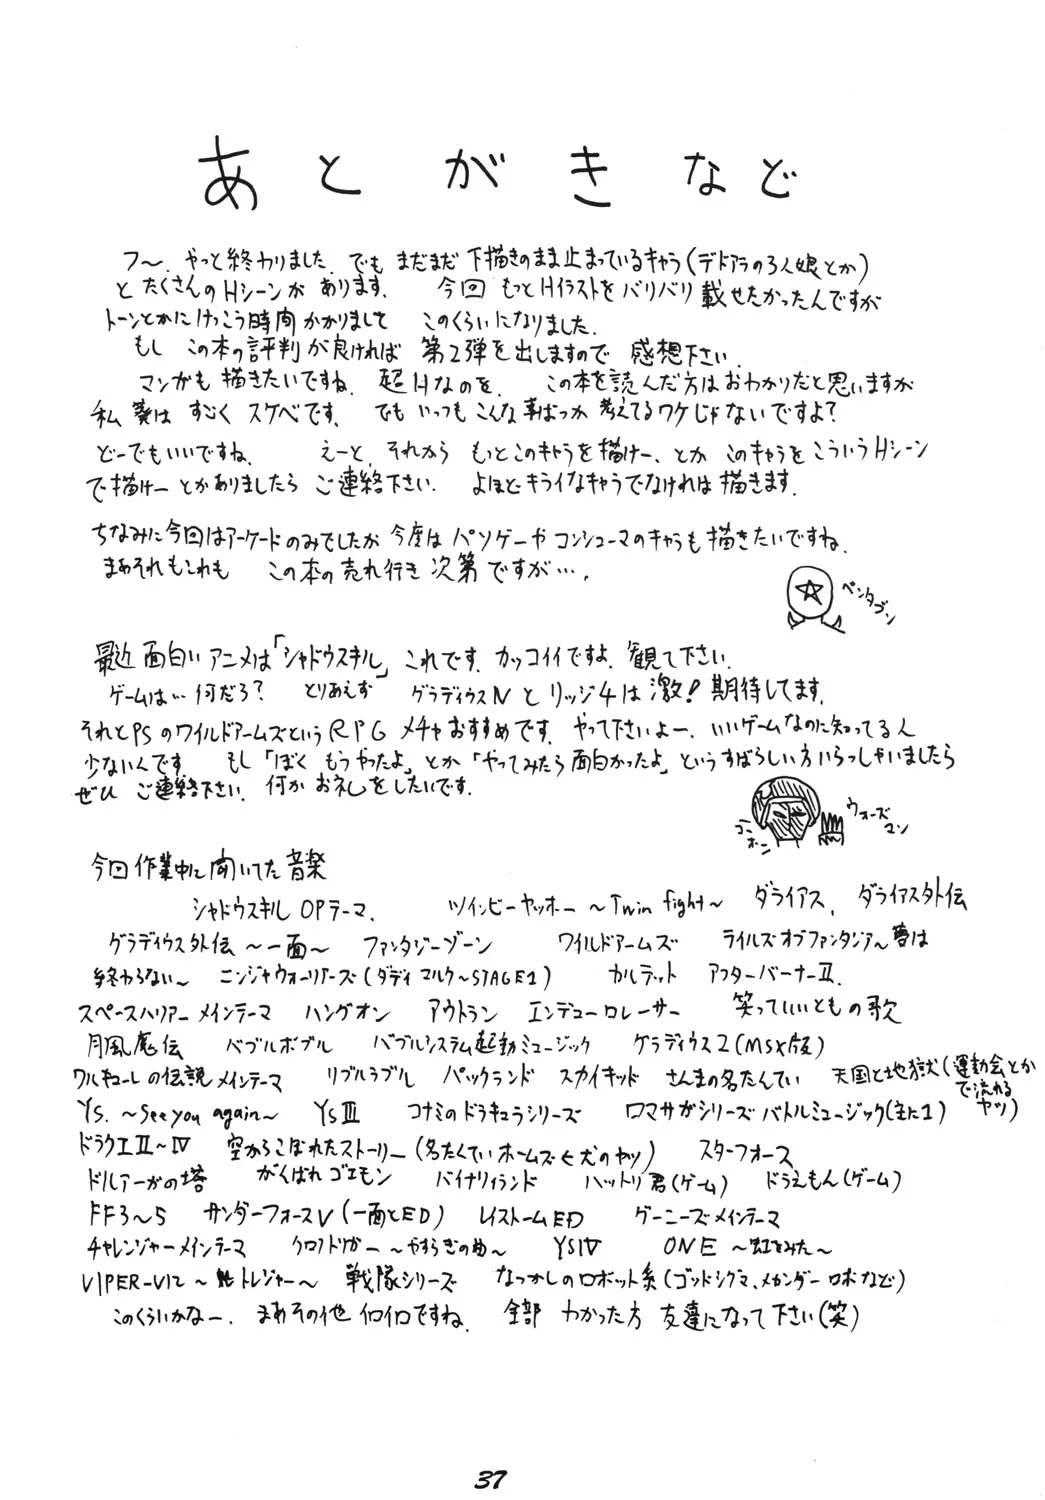 あとがきなど
フ〜、やっと終わりました。でも まだまだ 下描きのまま止まっているキャラ(デドアラの3人娘とか)
と たくさんのHシーンが あります。 今回 もっとHイラストを バリバリ 載せたかったんですが
トーンとかにけっこう時間かかりまして このくらいになりました。
もし この本の評判が良ければ 第2弾を出しますので 感想下さい。
マンガも 描きたいですね。超Hなのを。 この本を読んだ方はおわかりだと思いますが
私 すごく スケベです。 でも いっつも こんな事ばっか 考えてるワケじゃないですよ?
どーでもいいですね。 えーと、それから もっとこのキャラを描けー、とか このキャラを こういうHシーン
で描けー とかありましたら ご連絡下さい。 よほどキライなキャラでなければ描きます。
ちなみに今回はアーケードのみでしたが 今度は パソゲーや コンシューマのキャラも描きたいですね。
まあそれもこれも この本の売れ行き 次第ですが…。
ペンタゴン
最近面白いアニメは「シャドウスキル」 これです。カッコイイですよ。観て下さい。
ゲームは… 何だろ? とりあえず グラディウスⅣ と リッジ4は 激!期待してます。
それとPSのワイルドアームズというRPG メチャおすすめです。 やって下さいよー。いいゲームなのに知ってる人
少ないんです もし「ぼく もうやったよ」とか「やってみたら面白かったよ」というすばらしい方いらっしゃいましたら
ぜひ ご連絡下さい。何か お礼をしたいです。
コーホー
ウォーズマン
今回作業中に聞いてた音楽
シャドウスキル OPテーマ、 ツインビーヤッホー 〜Twin fight〜 ダライアス、 ダライアス外伝
グラディウス外伝 〜一面〜 ファンタジーゾーン ワイルドアームズ テイルズオブファンタジア〜夢は
終わらない〜 ニンジャウォーリアーズ(ダディマルク〜STAGE1) カルテット アフターバーナーⅡ.
スペースハリアー メインテーマ ハングオン アウトラン エンデューロレーサー 笑っていいともの歌
月風魔伝 バブルボブル バブルシステム起動ミュージック グラディウス2(MSX版)
ワルキューレの伝説 メインテーマ リブルラブル パックランド スカイキッド さんまの名たんてい 天国と地獄(運動会とか
で流れる
ヤツ)
Ys. 〜See you again〜 YsⅢ コナミのドラキュラシリーズ ロマサガシリーズ バトルミュージック(主に1)
ドラクエⅡ〜Ⅳ 空からこぼれたストーリー(名たんていホームズ 犬のヤツ) スターフォース
ドルアーガの塔 がんばれゴエモン バイナリィランド ハットリ君(ゲーム) ドラえもん(ゲーム)
FF3〜5 サンダーフォースⅤ(一面とED) レイストームED グーニーズメインテーマ
チャレンジャーメインテーマ クロノトリガー 〜やすらぎの曲〜 YSⅣ ONE 〜虹をみた〜
VIPER-V12 〜 トレジャー〜 戦隊シリーズ なつかしのロボット系(ゴッドシグマ、メカンダーロボなど)
このくらいかなー。 まあその他 イロイロですね。 全部 わかった方 友達になって下さい(笑)
37